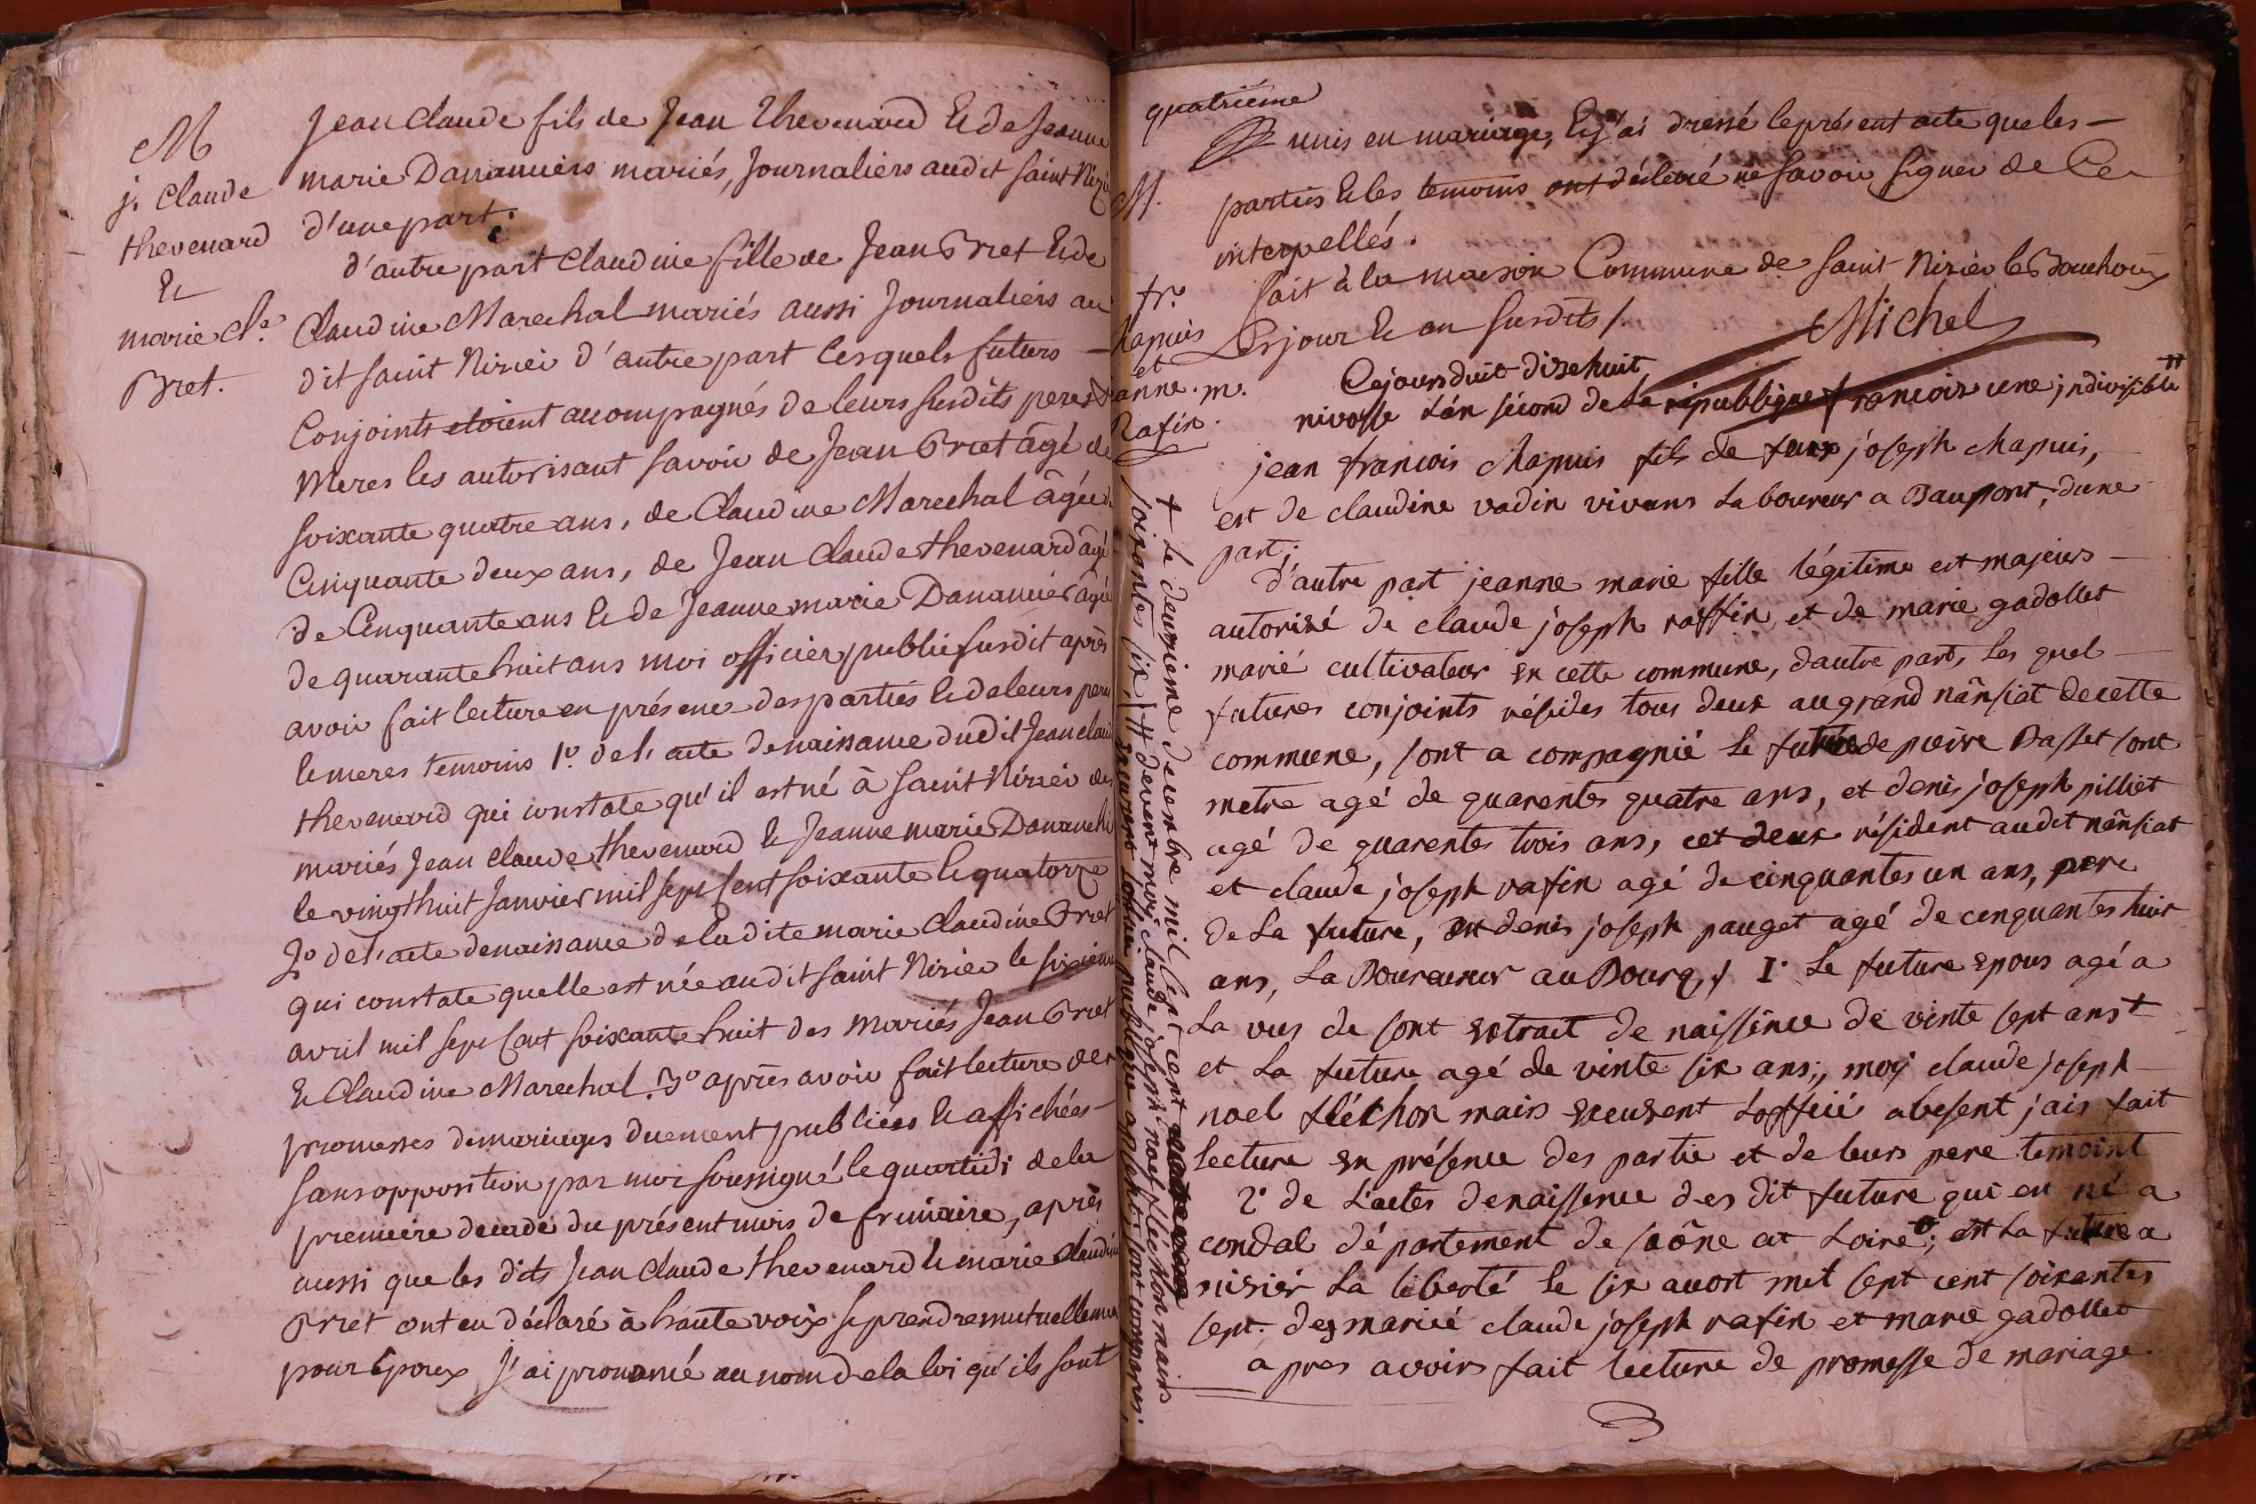 M
j. Claude
thevenard
&
marie Cl.e
Bret.
Jean Claude fils de Jean Thevenard & de Jeanne
marie Dananciers mariés, Journaliers audit saint Nizi
d'une part.
d'autre part Claudine fille de Jean Bret & de
Claudine Marechal mariés aussi Journaliers au
dit saint Nizier d'autre part lesquels futurs —
Conjoints etoient accompagnés de leurs susdits peres &
meres les autorisant savoir de Jean Bret âgé de
soixante quatre ans, de Claudine Marechal âgée
Cinquante deux ans, de Jean Claude thevenard âgé
de Cinquante ans & de Jeanne marie Danancier âgée
de quarante huit ans moi officier public susdit après
avoir fait lecture en présence des parties & de leurs peres
& meres temoins 1.o de l'acte de naissance dudit Jean claud
thevenard qui constate qu'il est né à Saint Nizier des
mariés Jean Claude thevenard & Jeanne marie Dananchi
le vingt huit Janvier mil sept Cent soixante & quatorze
2.o de l'acte de naissance de ladite marie Claudine Bret
qui constate quelle est née audit saint Nizier le sixieme
avril mil sept Cent soixante huit des mariés Jean Bret
& Claudine Marechal. 3.o après avoir fait lecture des
promesses de mariages duement publiées & affichées —
sans opposition par moi soussigné le quartidi de la
premiere decade du présent mois de frimaire, après
aussi que les dits Jean Claude thevenard & marie Claudin
Bret ont eu déclaré à haute voix se prendre mutuellemen
pour Epoux J'ai prononcé au nom de la loi qu'ils sont
quatrième
unis en mariage, Et j'ai dressé le présent acte que les —
parties & les temoins ont déclaré ne savoir signer de Ce
interpellés.
fait à la maison Commune de saint Nizier le Bouchoux
Les jour & an susdits /.
Michel
M.
fr.
hapuis
et
anne. m.
Rafin.
Cejoursduit dizehuit
nivosse l'an sécond de la république francois une jndivisible #
jean francois chapuis fils de feux joseph chapuis,
est de claudine vadin vivans laboureur a Baupont, dune
part;
d'autre part jeanne marie fille légitime est majeurs —
autorisé de claude joseph raffin, et de marie gadollet
marié cultivateur en cette commune, dautre part, les quel —
futures conjoints résides tous deux au grand nânsiat decette
commune, sont a compagnié le future de peirre Basset sont
metre agé de quarentes quatre ans, et denis joseph pilliet
agé de quarentes trois ans, cet deux résident audet nânsiat
et claude joseph rafin agé de cinquantes un ans, pere
de la future, et denis joseph pauget agé de cenquantes huit
ans, la Boureureur au Bourg, / I.o le future epous agé a
la vus de sont extrait de naissënce de vinte sept ans +
et la future agé de vinte six ans;, moy claude joseph —
noel fléchon mairs excusent l'officié absent jais fait
lecture en présence des partie et de leurs pere temoint
2.o de l'actes denaissence des dit future qui en né a
condal département de saône at loire; est la future a
nisiér la liberté le six auost mil sept cent soixantes
sept. des mariié claude joseph rafin et marie gadollet
apres avoirs fait lecture de promesse de mariage
+ Le deuxieme deuxenbre mil sept cent
soixantes six, / # devent moy claude joseph noel flechon mairs